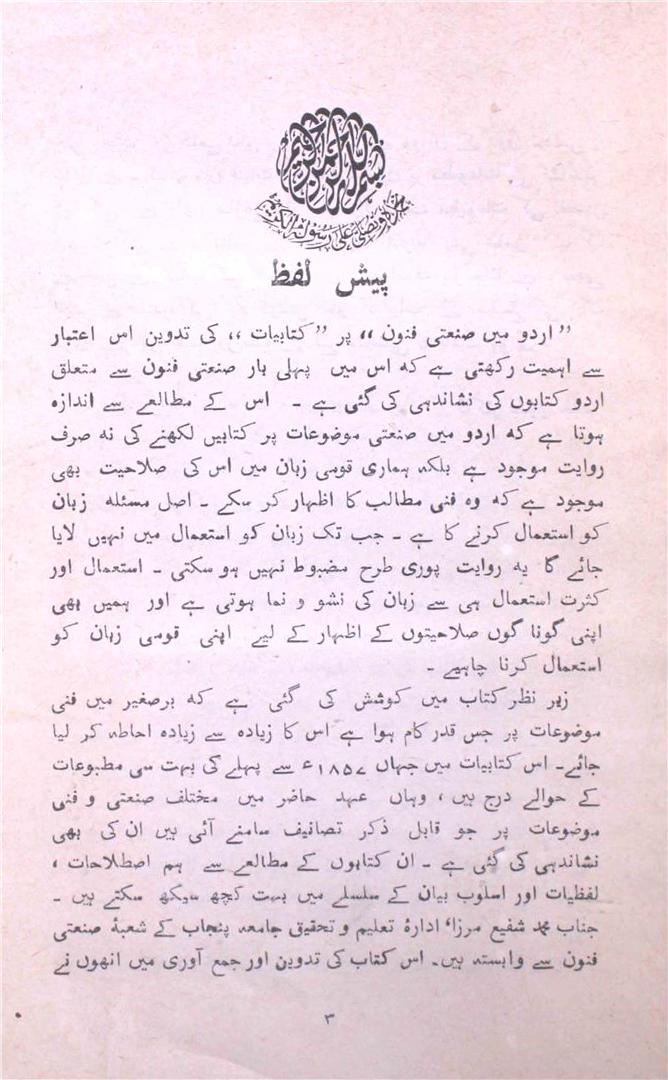 بسم اللہ الرحمن الرحیم
نحمدہ و نصلی علی رسولہ الکریم
پیش لفظ
” اردو میں صنعتی فنون ،، پر ”کتابیات ،، کی تدوین اس اعتبار
سے اہمیت رکھتی ہے کہ اس میں پہلی بار صنعتی فنون سے متعلق
اردو کتابوں کی نشاندہی کی گئی ہے ۔ اس کے مطالعے سے اندازہ
ہوتا ہے کہ اردو میں صنعتی موضوعات پر کتابیں لکھنے کی نہ صرف
روایت موجود ہے بلکہ ہماری قومی زبان میں اس کی صلاحیت بھی
موجود ہے کہ وہ فنی مطالب کا اظہار کر سکے ۔ اصل مسئلہ زبان
کو استعمال کرنے کا ہے ۔ جب تک زبان کو استعمال میں نہیں لایا
جائے گا یہ روایت پوری طرح مضبوط نہیں ہو سکتی ۔ استعمال اور
کثرت استعمال ہی سے زبان کی نشو و نما ہوتی ہے اور ہمیں بھی
اپنی گونا گوں صلاحیتوں کے اظہار کے لیے اپنی قومی زبان کو
استعمال کرنا چاہیے ۔
زیر نظر کتاب میں کوشش کی گئی ہے کہ برصغیر میں فنی
موضوعات پر جس قدر کام ہوا ہے اس کا زیادہ سے زیادہ احاطہ کر لیا
جائے۔ اس کتابیات میں جہاں ۱۸۵۷ء سے پہلے کی بہت سی مطبوعات
کے حوالے درج ہیں ، وہاں عہد حاضر میں مختلف صنعتی و فنی
موضوعات پر جو قابل ذکر تصانیف سامنے آئی ہیں ان کی بھی
نشاندہی کی گئی ہے ۔ ان کتابوں کے مطالعے سے ہم اصطلاحات ،
لفظیات اور اسلوب بیان کے سلسلے میں بہت کچھ سیکھ سکتے ہیں ۔
جناب محمد شفیع مرزا، ادارۂ تعلیم و تحقیق جامعہ پنجاب کے شعبۂ صنعتی
فنون سے وابستہ ہیں۔ اس کتاب کی تدوین اور جمع آوری میں انھوں نے
۳